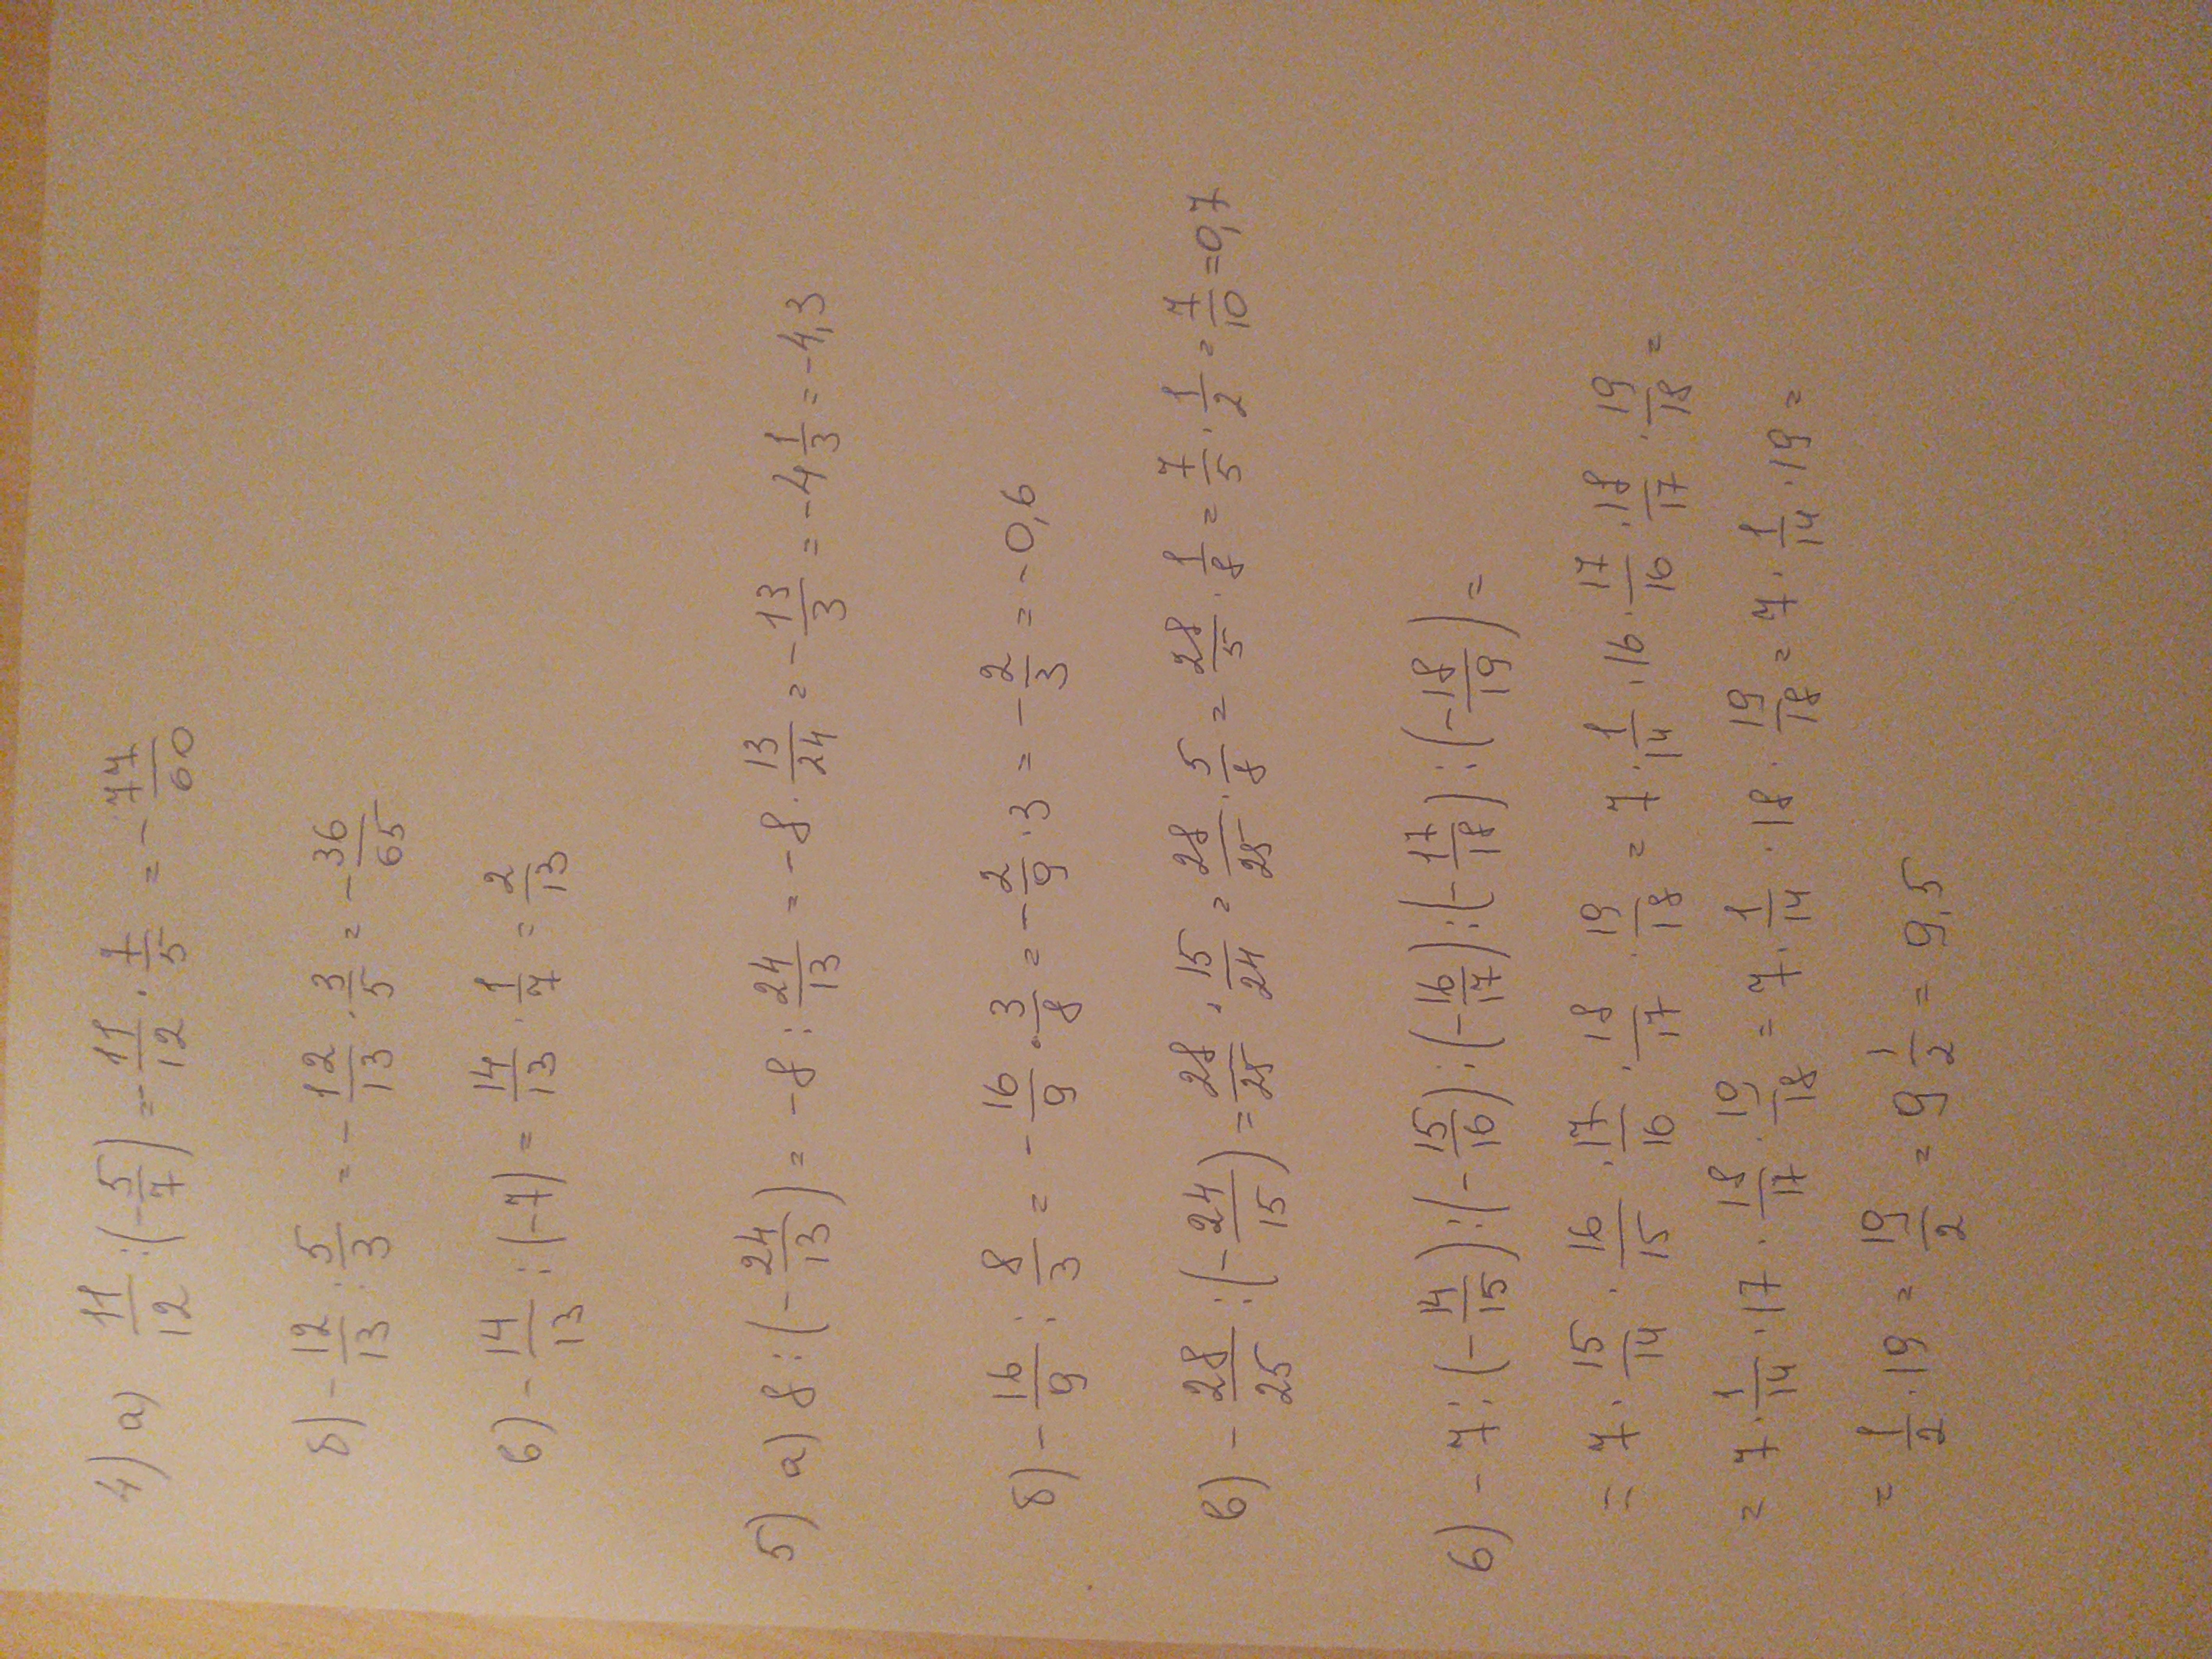 4) а) 11/12 : (-5/7) = -11/12 · 7/5 = -77/60
б) -12/13 : 5/3 = -12/13 · 3/5 = -36/65
в) -14/13 : (-7) = 14/13 · 1/7 = 2/13
5) а) 8 : (-24/13) = -8 : 24/13 = -8 · 13/24 = -13/3 = -4 1/3 = -4,3
б) -16/9 : 8/3 = -16/9 · 3/8 = -2/9 · 3 = -2/3 = -0,6
в) -28/25 : (-24/15) = 28/25 · 15/24 = 28/25 · 5/8 = 28/5 · 1/8 = 7/5 · 1/2 = 7/10 = 0,7
6) -7 : (-14/15) : (-15/16) : (-16/17) : (-17/18) : (-18/19) =
= 7 · 15/14 · 16/15 · 17/16 · 18/17 · 19/18 = 7 · 1/14 · 16 · 17/16 · 18/17 · 19/18 =
= 7 · 1/14 · 17 · 18/17 · 19/18 = 7 · 1/14 · 18 · 19/18 = 7 · 1/14 · 19 =
= 1/2 · 19 = 19/2 = 9 1/2 = 9,5